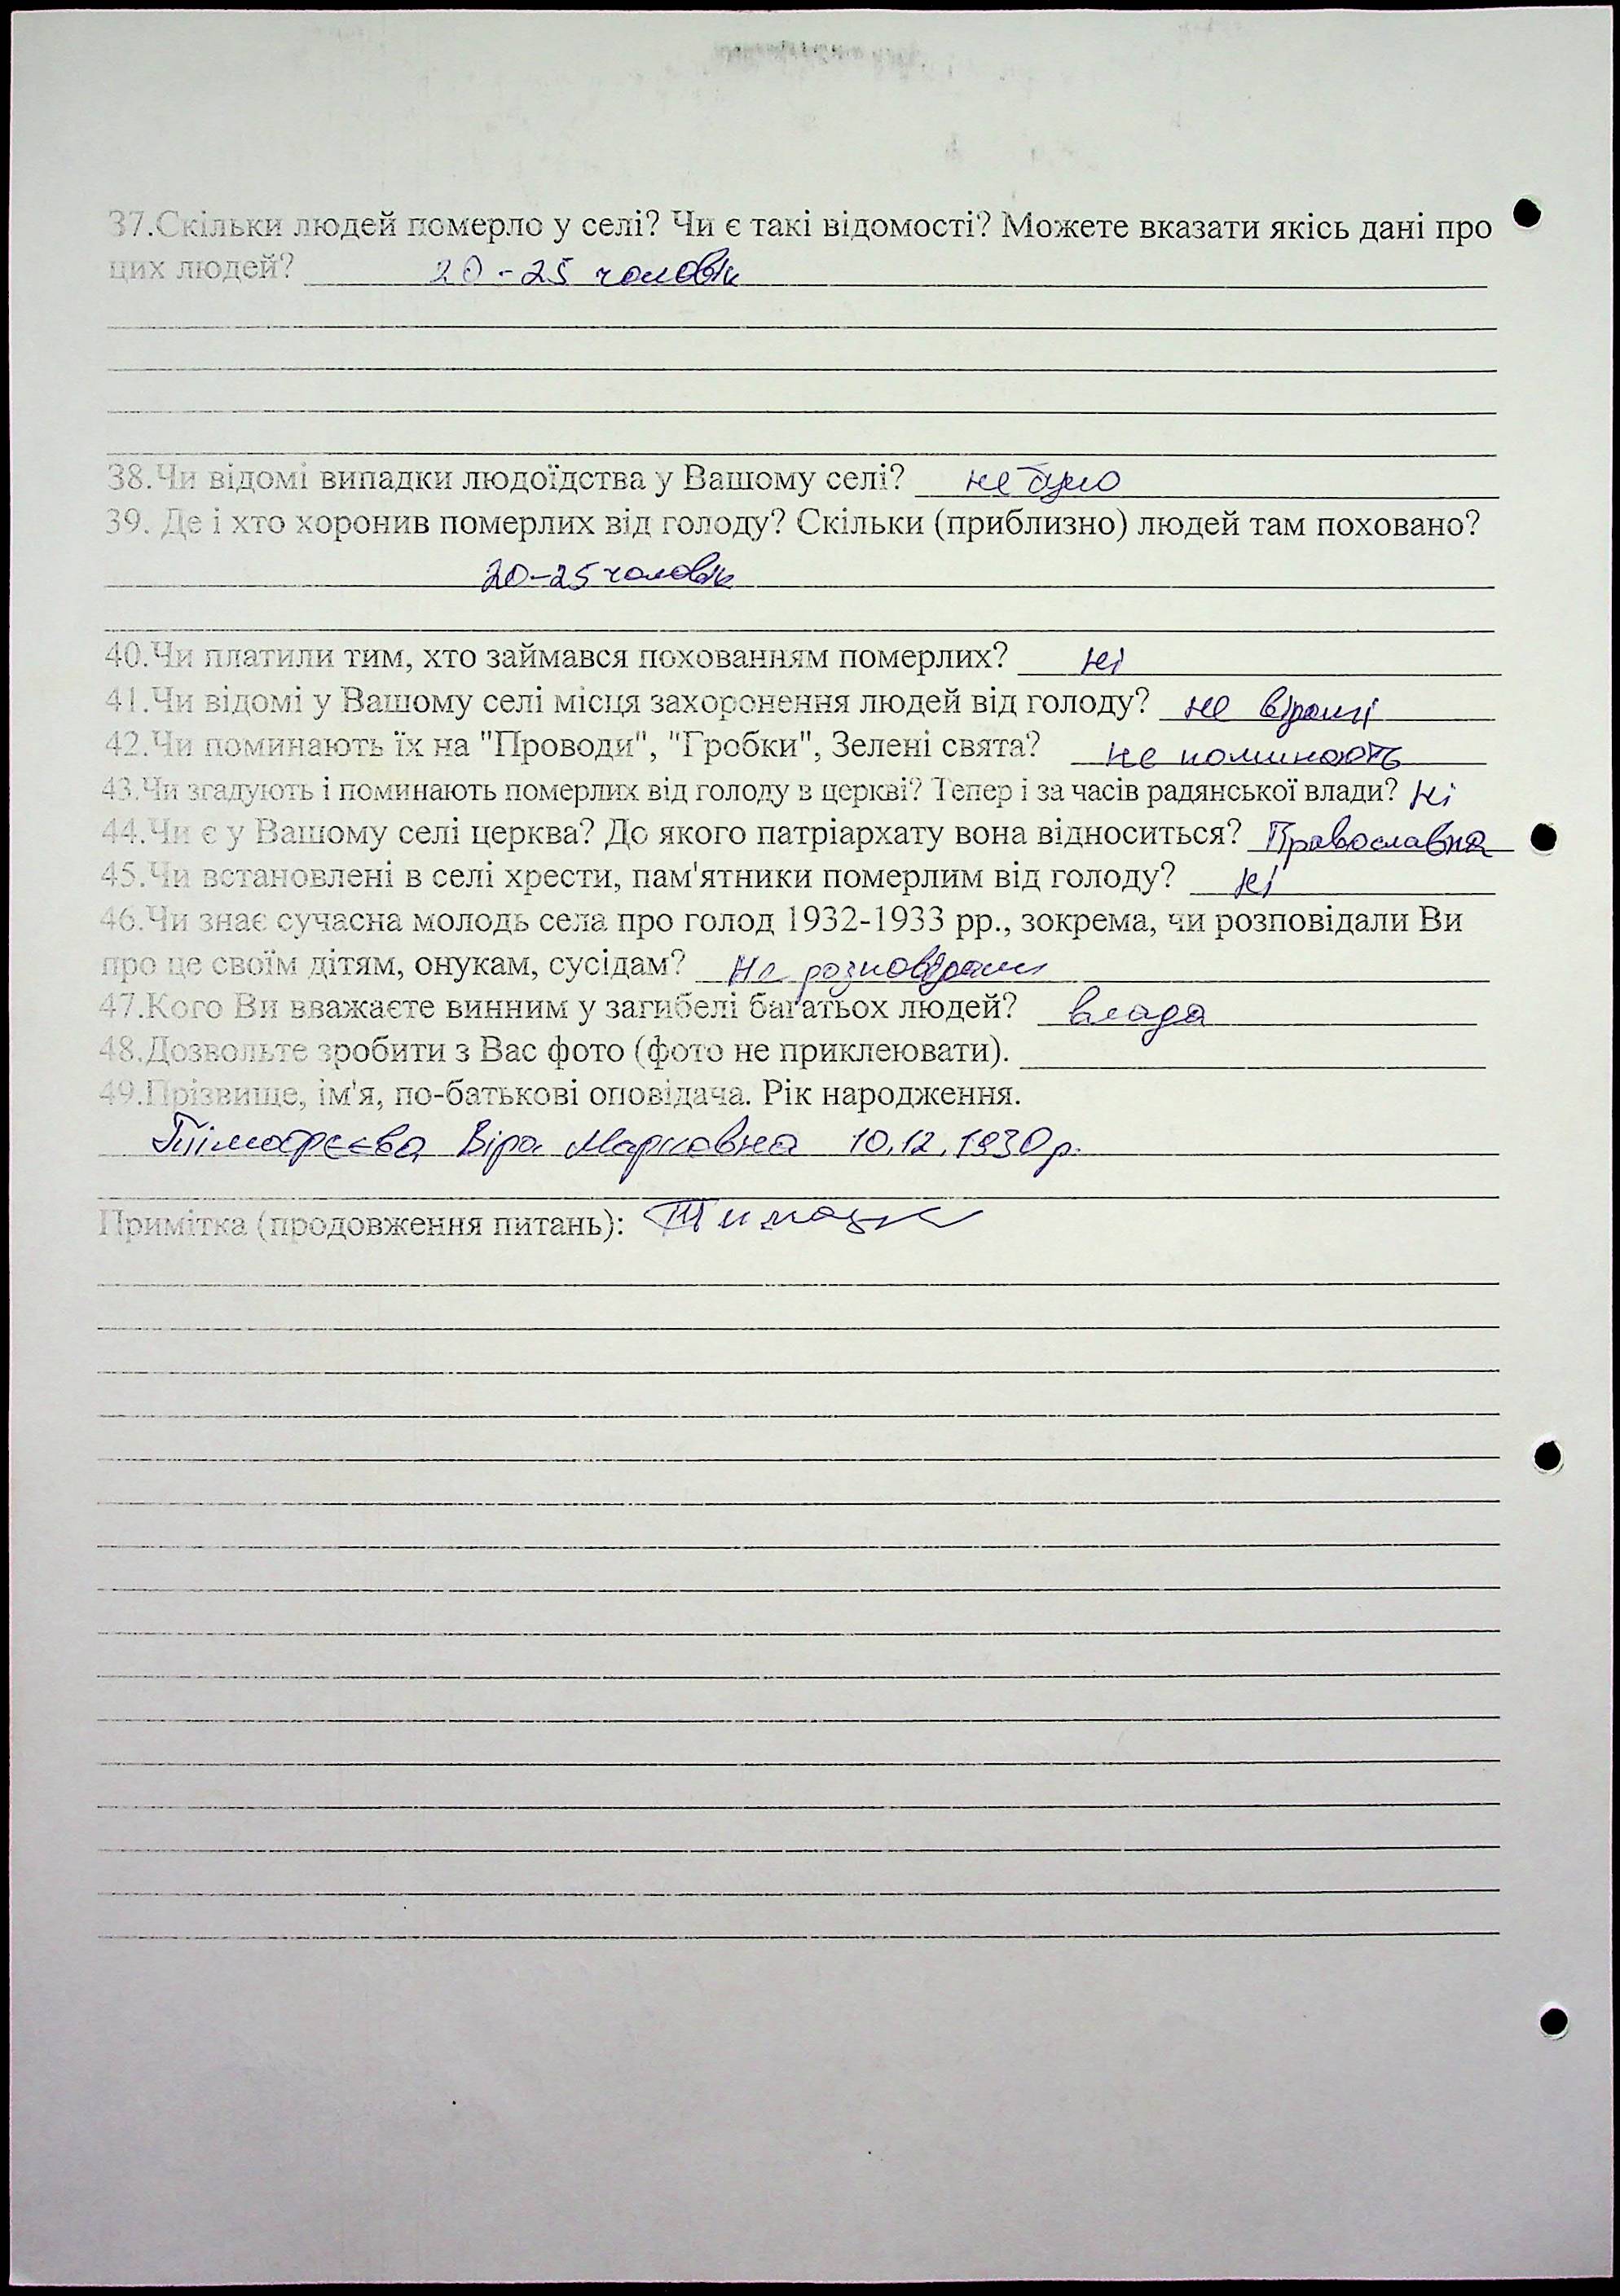 37.Скільки людей померло у селі? Чи є такі відомості? Можете вказати якісь дані про
цих людей? 20-25 чоловік
38.Чи відомі випадки людоїдства у Вашому селі? не було
39. Де і хто хоронив померлих від голоду? Скільки (приблизно) людей там поховано?
20-25 чоловік
40.Чи платили тим, хто займався похованням померлих? ні
41.Чи відомі у Вашому селі місця захоронення людей від голоду? не відомі
42.Чи поминають їх на "Проводи", "Гробки", Зелені свята? не поминають
43.Чи згадують і поминають померлих від голоду в церкві? Тепер і за часів радянської влади? Ні
44.Чи є у Вашому селі церква? До якого патріархату вона відноситься? Православна
45.Чи встановлені в селі хрести, пам'ятники померлим від голоду? ні
46.Чи знає сучасна молодь села про голод 1932-1933 рр., зокрема, чи розповідали Ви
про це своїм дітям, онукам, сусідам? Не розповідали
47.Кого Ви вважаєте винним у загибелі багатьох людей? влада
48.Дозвольте зробити з Вас фото (фото не приклеювати).
49.Прізвище, ім'я, по-батькові оповідача. Рік народження.
Тімофєєва Віра Марковна 10.12.1930р.
Примітка (продовження питань):